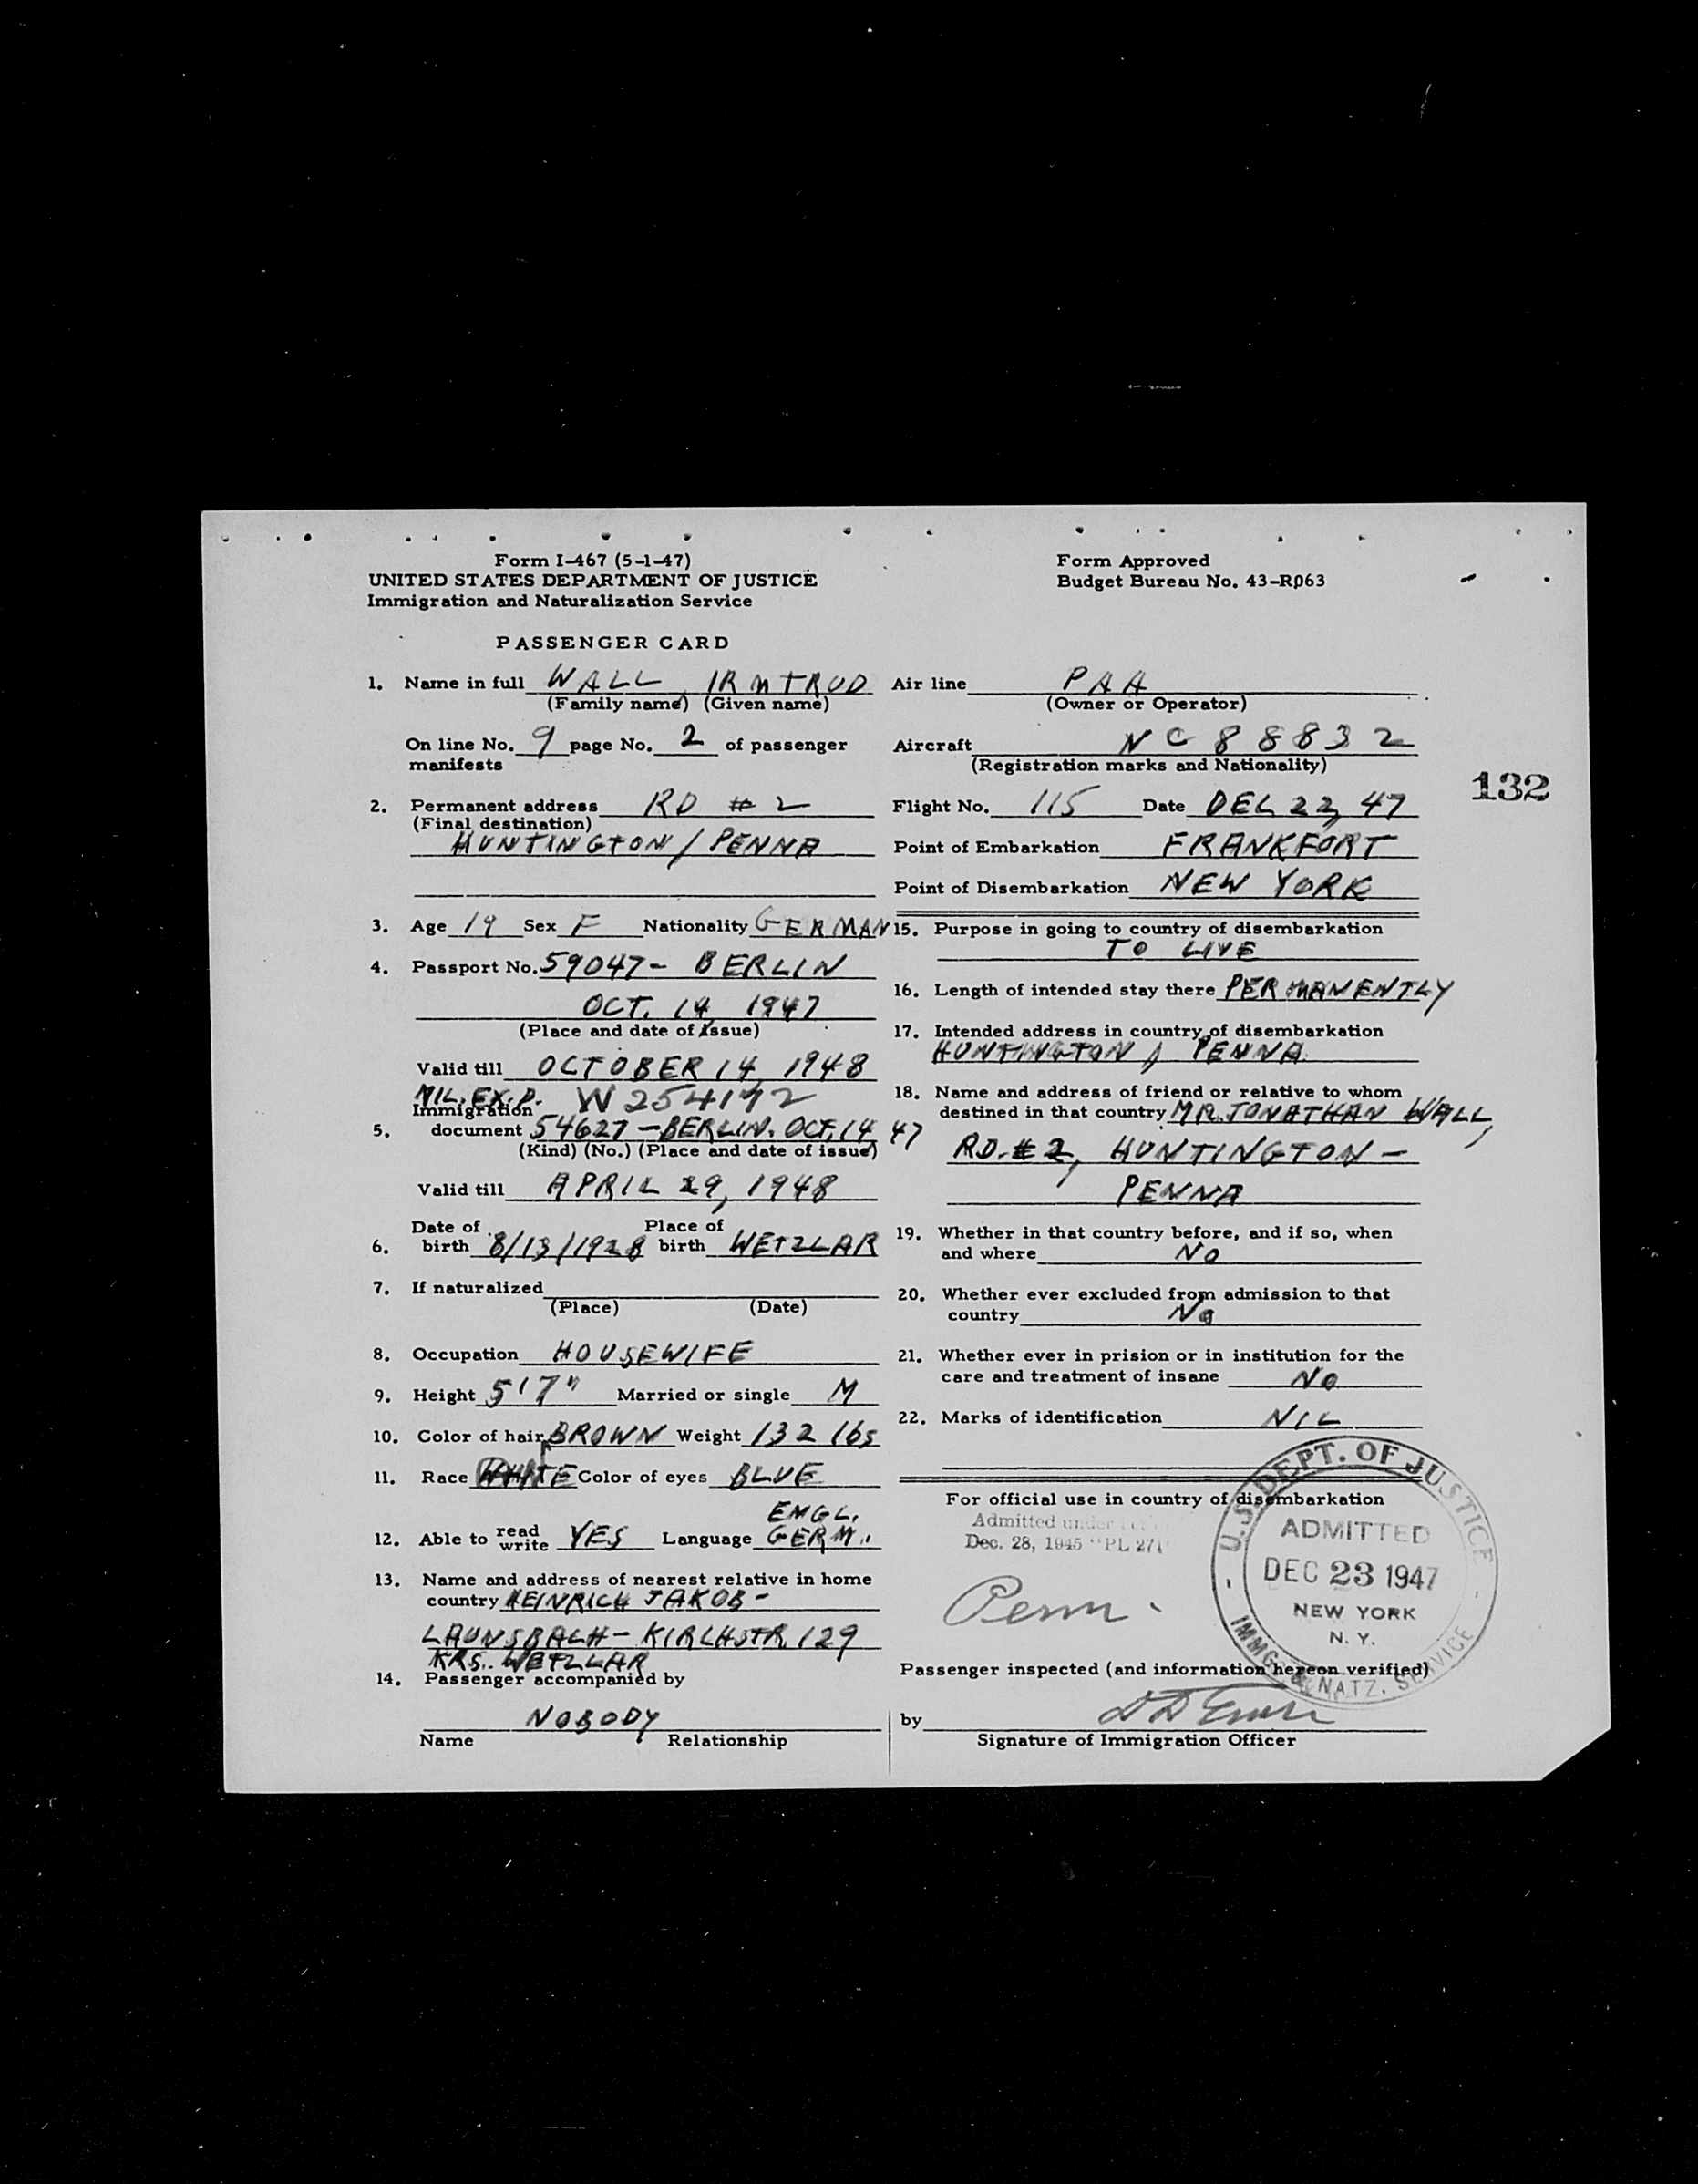 Form I-467 (5-1-47)
UNITED STATES DEPARTMENT OF JUSTICE
Immigration and Naturalization Service
Form Approved
Budget Bureau No. 43-R063
PASSENGER CARD
1. Name in full WALL, IRMTRUD
(Family name) (Given name)
On line No. 9 page No. 2 of passenger
manifests
2. Permanent address RD # 2
(Final destination)
HUNTINGTON / PENNA
3. Age 19 Sex F Nationality GERMAN
4. Passport No. 59047- BERLIN
OCT. 14, 1947
(Place and date of issue)
Valid till OCTOBER 14, 1948
MIL. EX. P. W
Immigration
5. document 54627-BERLIN. OCT. 14 47
(Kind) (No.) (Place and date of issue)
Valid till APRIL 29, 1948
6. Date of birth 8/13/1928 Place of birth WETZLAR
7. If naturalized
(Place) (Date)
8. Occupation HOUSEWIFE
9. Height 5'7" Married or single M
10. Color of hair BROWN Weight 132 lbs
11. Race WHITE Color of eyes BLUE
ENGL.
12. Able to read write YES Language GERM.
13. Name and address of nearest relative in home
country HEINRICH JAKOB-
LAUNSBACH- KIRCHSTR. 129
KRS. WETZLAR
14. Passenger accompanied by
NOBODY
Name Relationship
Air line PAA
(Owner or Operator)
Aircraft NC 88832
(Registration marks and Nationality)
132
Flight No. 115 Date DEC 22, 47
Point of Embarkation FRANKFORT
Point of Disembarkation NEW YORK
15. Purpose in going to country of disembarkation
TO LIVE
16. Length of intended stay there PERMANENTLY
17. Intended address in country of disembarkation
HUNTINGTON, PENNA.
18. Name and address of friend or relative to whom
destined in that country MR. JONATHAN WALL,
RD. # 2, HUNTINGTON-
PENNA
19. Whether in that country before, and if so, when
and where NO
20. Whether ever excluded from admission to that
country NO
21. Whether ever in prision or in institution for the
care and treatment of insane NO
22. Marks of identification NIL
For official use in country of disembarkation
Admitted under
Dec. 28, 1945 "PL 271
Perm.
U.S. DEPT. OF JUSTICE
ADMITTED
DEC 23 1947
NEW YORK
N. Y.
IMMIG. & NATZ. SERVICE
Passenger inspected (and information hereon verified)
by
Signature of Immigration Officer